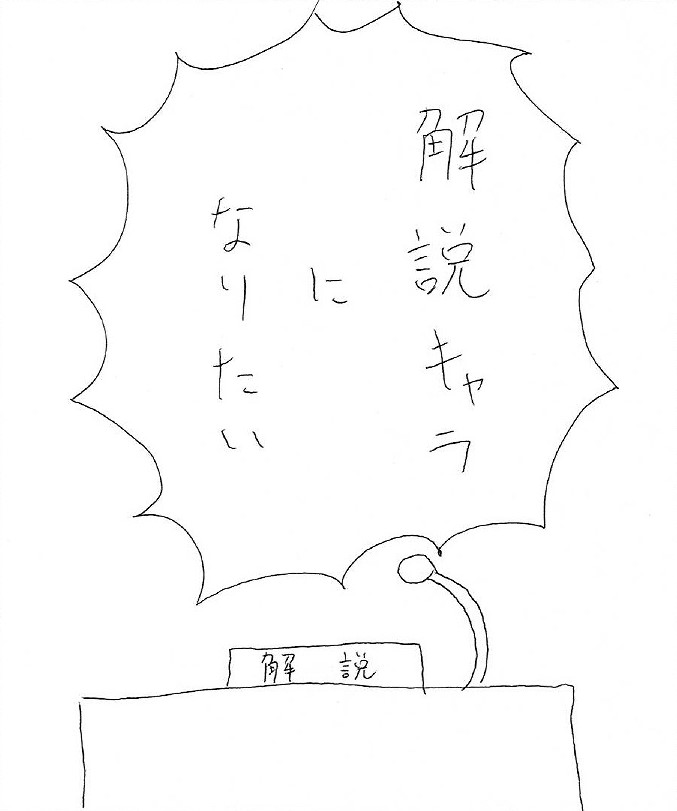 解説キャラ
に
なりたい
解説